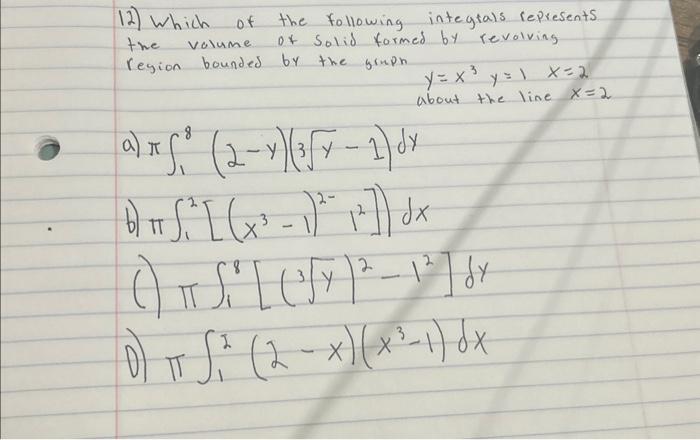 12) Which of the following integrals represents
the volume of solid formed by revolving
region bounded by the graph
y = x³ y = 1 x = 2
about the line x = 2
a) π∫₁⁸ (2-y)(³√y - 1) dy
b) π∫₁² [(x³ - 1)²⁻ 1²]) dx
C) π∫₁⁸ [(³√y)² - 1²] dy
D) π∫₁² (2-x)(x³-1) dx